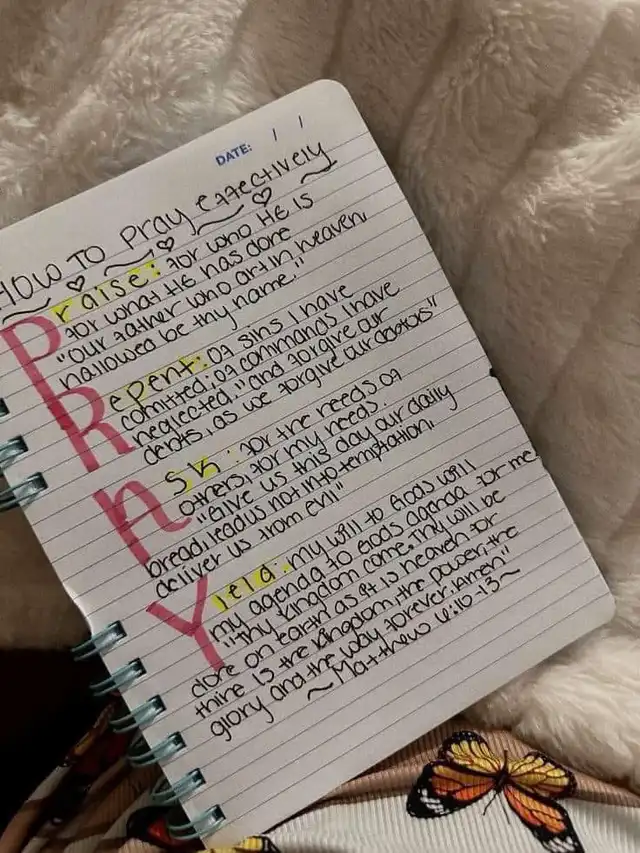 DATE: / /
HOW TO PRAY EFFECTIVELY
Praise: for who He is
for what He has done
"Our father who art in heaven,
hallowed be thy name."
Repent: of sins I have
comitted; of commands I have
neglected. "and forgive our
debts, as we forgive our debtors"
Ask: for the needs of
others, for my needs.
"Give us this day our daily
bread; lead us not into temptation,
deliver us from evil"
Yield: my will to Gods will
my agenda to Gods agenda for me
"Thy kingdom come, Thy will be
done on earth as it is heaven for
thine is the kingdom, the power, the
glory and the way forever. Amen"
~ Matthew 6:10-13 ~